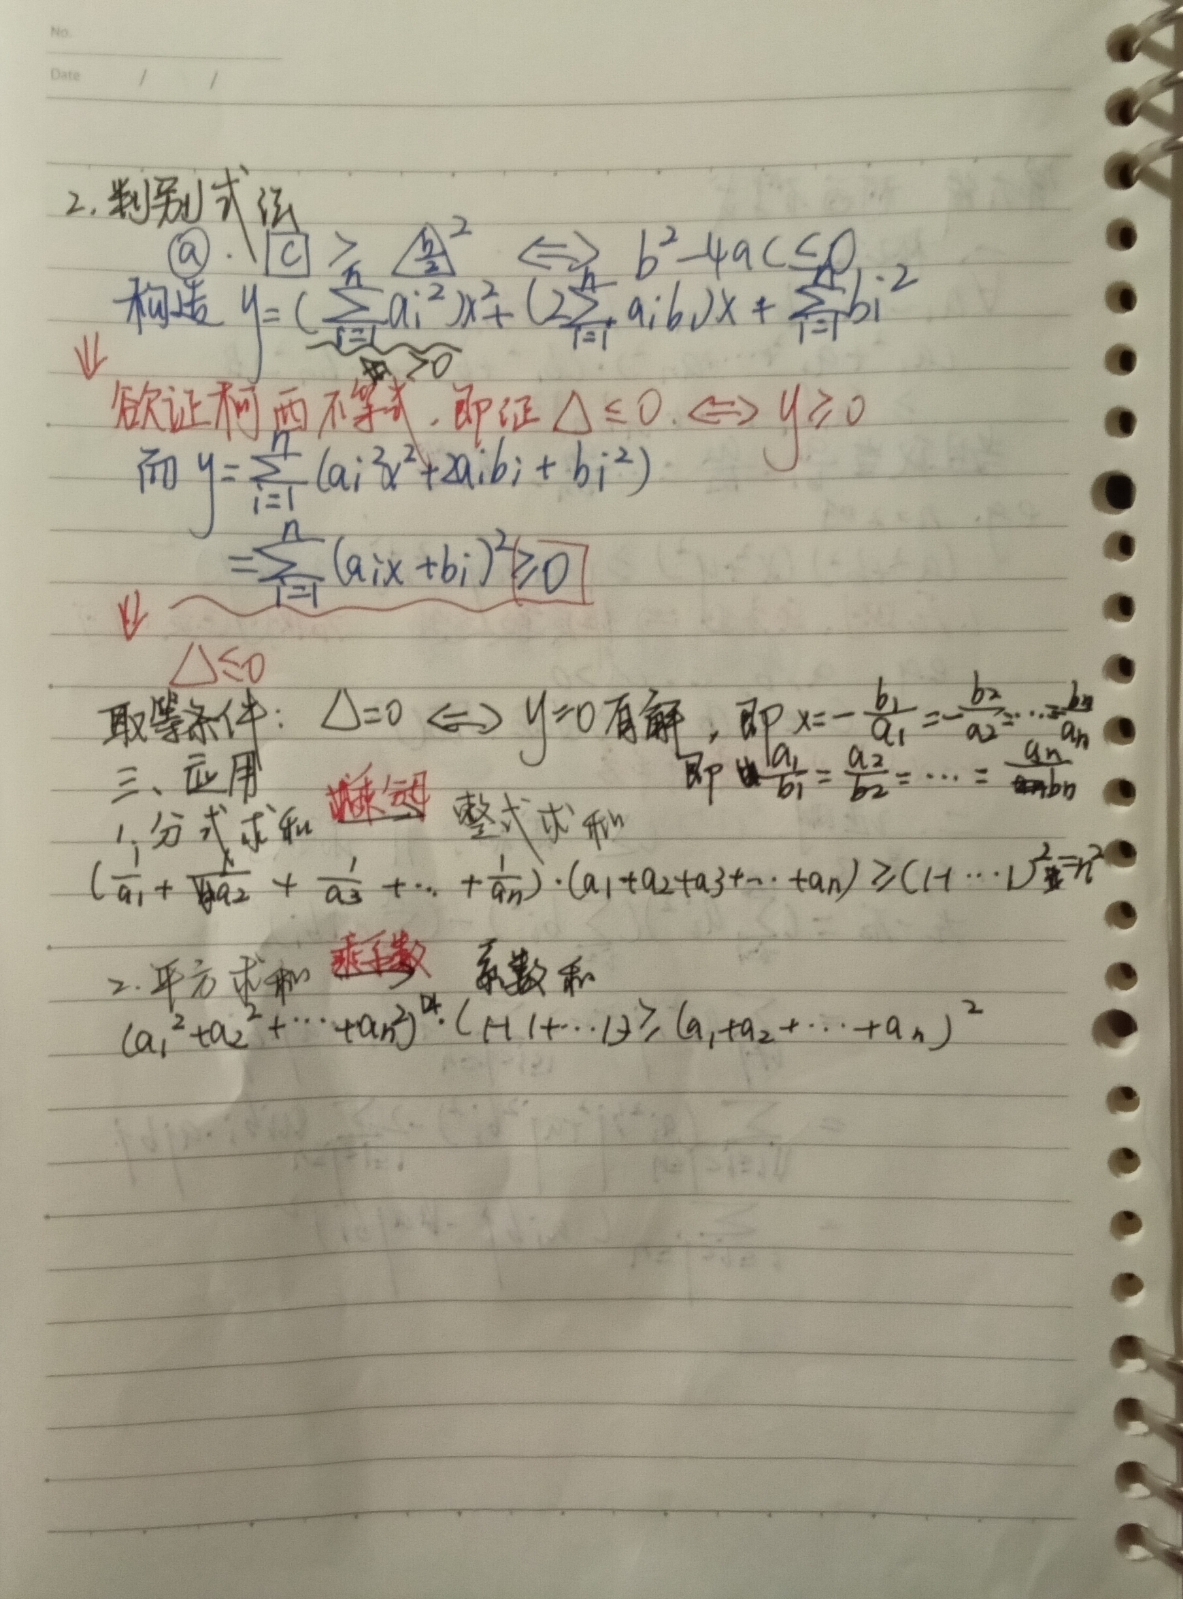 No.
Date / /
2. 判别式法
ⓐ · [c] ≥ (b/2)² ⟺ b²-4ac≤0
构造 y=(∑_{i=1}^{n} ai²)x²+(2∑_{i=1}^{n} aibi)x+∑_{i=1}^{n} bi²
>0
⇓
欲证柯西不等式，即证 △≤0. ⟺ y≥0
而 y=∑_{i=1}^{n} (ai²x²+2aibi+bi²)
=∑_{i=1}^{n} (aix+bi)²≥0
⇓
△≤0
取等条件: △=0 ⟺ y=0有解，即 x=-b1/a1=-b2/a2=…=bn/an
即 a1/b1=a2/b2=…=an/bn
三、应用
1. 分式求和 乘分母 整式求和
(1/a1+1/a2+1/a3+…+1/an)·(a1+a2+a3+…+an)≥(1+…1)²=n²
2. 平方求和 乘系数 系数和
(a1²+a2²+…+an²)·(1+1+…1)≥(a1+a2+…+an)²